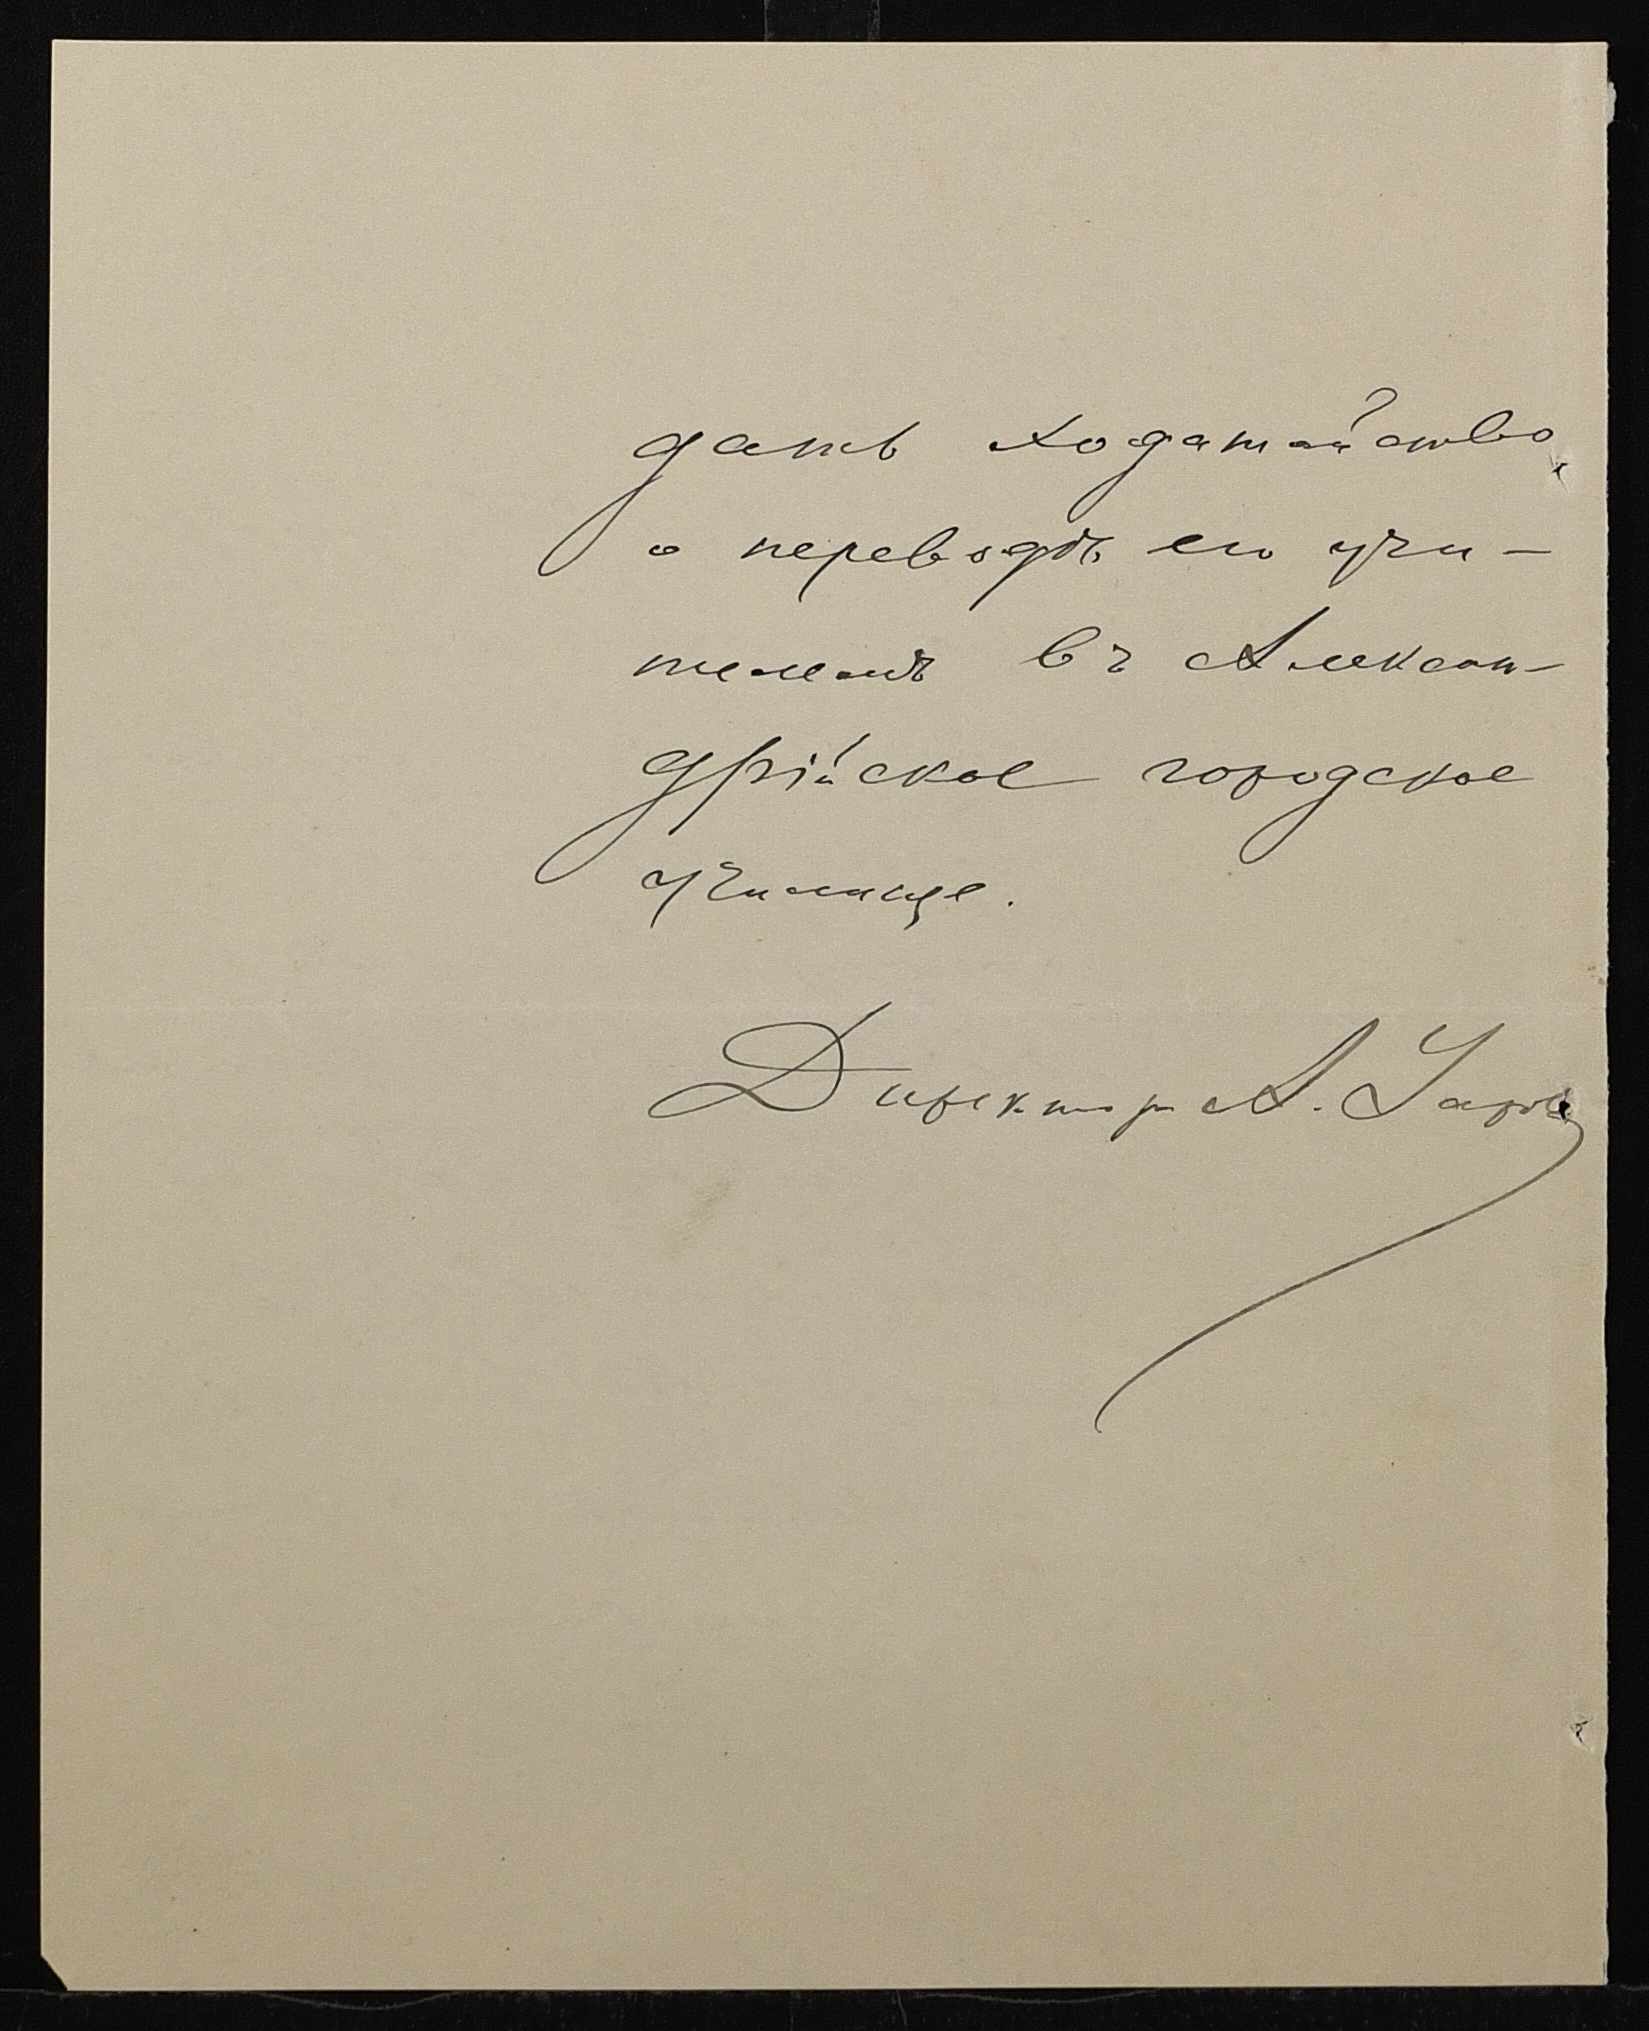 дать ходатайство
о переводѣ его учи-
телемъ въ Алексан-
дрійское городское
училище.
Директор А.